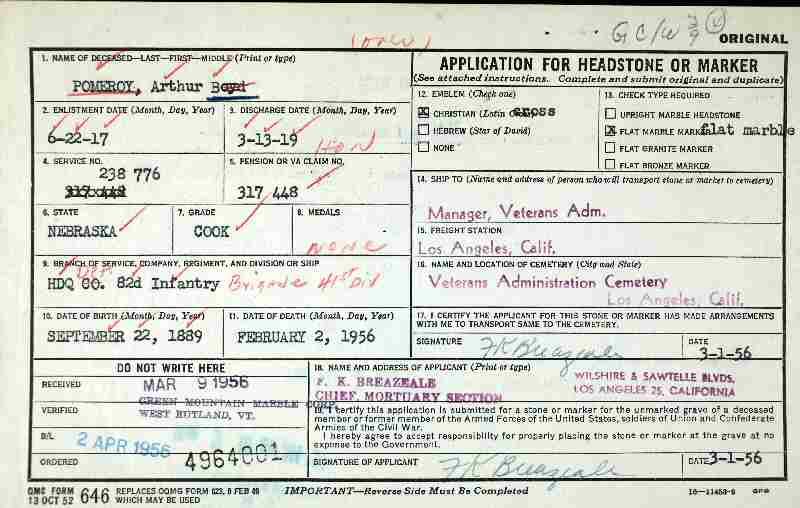 (over)
G C/W 3/9 V
ORIGINAL
1. NAME OF DECEASED—LAST—FIRST—MIDDLE (Print or type)
POMEROY, Arthur Boyd
2. ENLISTMENT DATE (Month, Day, Year)
6-22-17
3. DISCHARGE DATE (Month, Day, Year)
3-13-19 HON
4. SERVICE NO.
238 776
317 448
5. PENSION OR VA CLAIM NO.
317 448
6. STATE
NEBRASKA
7. GRADE
COOK
8. MEDALS
None
9. BRANCH OF SERVICE, COMPANY, REGIMENT, AND DIVISION OR SHIP
HDQ CO. 82d Infantry Brigade 41st Div
10. DATE OF BIRTH (Month, Day, Year)
SEPTEMBER 22, 1889
11. DATE OF DEATH (Month, Day, Year)
FEBRUARY 2, 1956
APPLICATION FOR HEADSTONE OR MARKER
(See attached instructions. Complete and submit original and duplicate)
12. EMBLEM (Check one)
X CHRISTIAN (Latin cross
HEBREW (Star of David)
NONE
13. CHECK TYPE REQUIRED
UPRIGHT MARBLE HEADSTONE
X FLAT MARBLE MARKER flat marble
FLAT GRANITE MARKER
FLAT BRONZE MARKER
14. SHIP TO (Name and address of person who will transport stone or marker to cemetery)
Manager, Veterans Adm.
15. FREIGHT STATION
Los Angeles, Calif.
16. NAME AND LOCATION OF CEMETERY (City and State)
Veterans Administration Cemetery
Los Angeles, Calif.
17. I CERTIFY THE APPLICANT FOR THIS STONE OR MARKER HAS MADE ARRANGEMENTS
WITH ME TO TRANSPORT SAME TO THE CEMETERY.
SIGNATURE FK Breazeale
DATE 3-1-56
DO NOT WRITE HERE
RECEIVED MAR 9 1956
GREEN MOUNTAIN MARBLE CORP.
VERIFIED WEST RUTLAND, VT.
B/L 2 APR 1956
ORDERED 4964001
18. NAME AND ADDRESS OF APPLICANT (Print or type)
F. K. BREAZEALE
CHIEF, MORTUARY SECTION
WILSHIRE & SAWTELLE BLVDS.
LOS ANGELES 25, CALIFORNIA
19. I certify this application is submitted for a stone or marker for the unmarked grave of a deceased
member or former member of the Armed Forces of the United States, soldiers of Union and Confederate
Armies of the Civil War.
I hereby agree to accept responsibility for properly placing the stone or marker at the grave at no
expense to the Government.
SIGNATURE OF APPLICANT FK Breazeale DATE 3-1-56
QMC FORM
13 OCT 52 646 REPLACES OQMG FORM 623, 9 FEB 49
WHICH MAY BE USED
IMPORTANT—Reverse Side Must Be Completed
16—11453-6 GPO